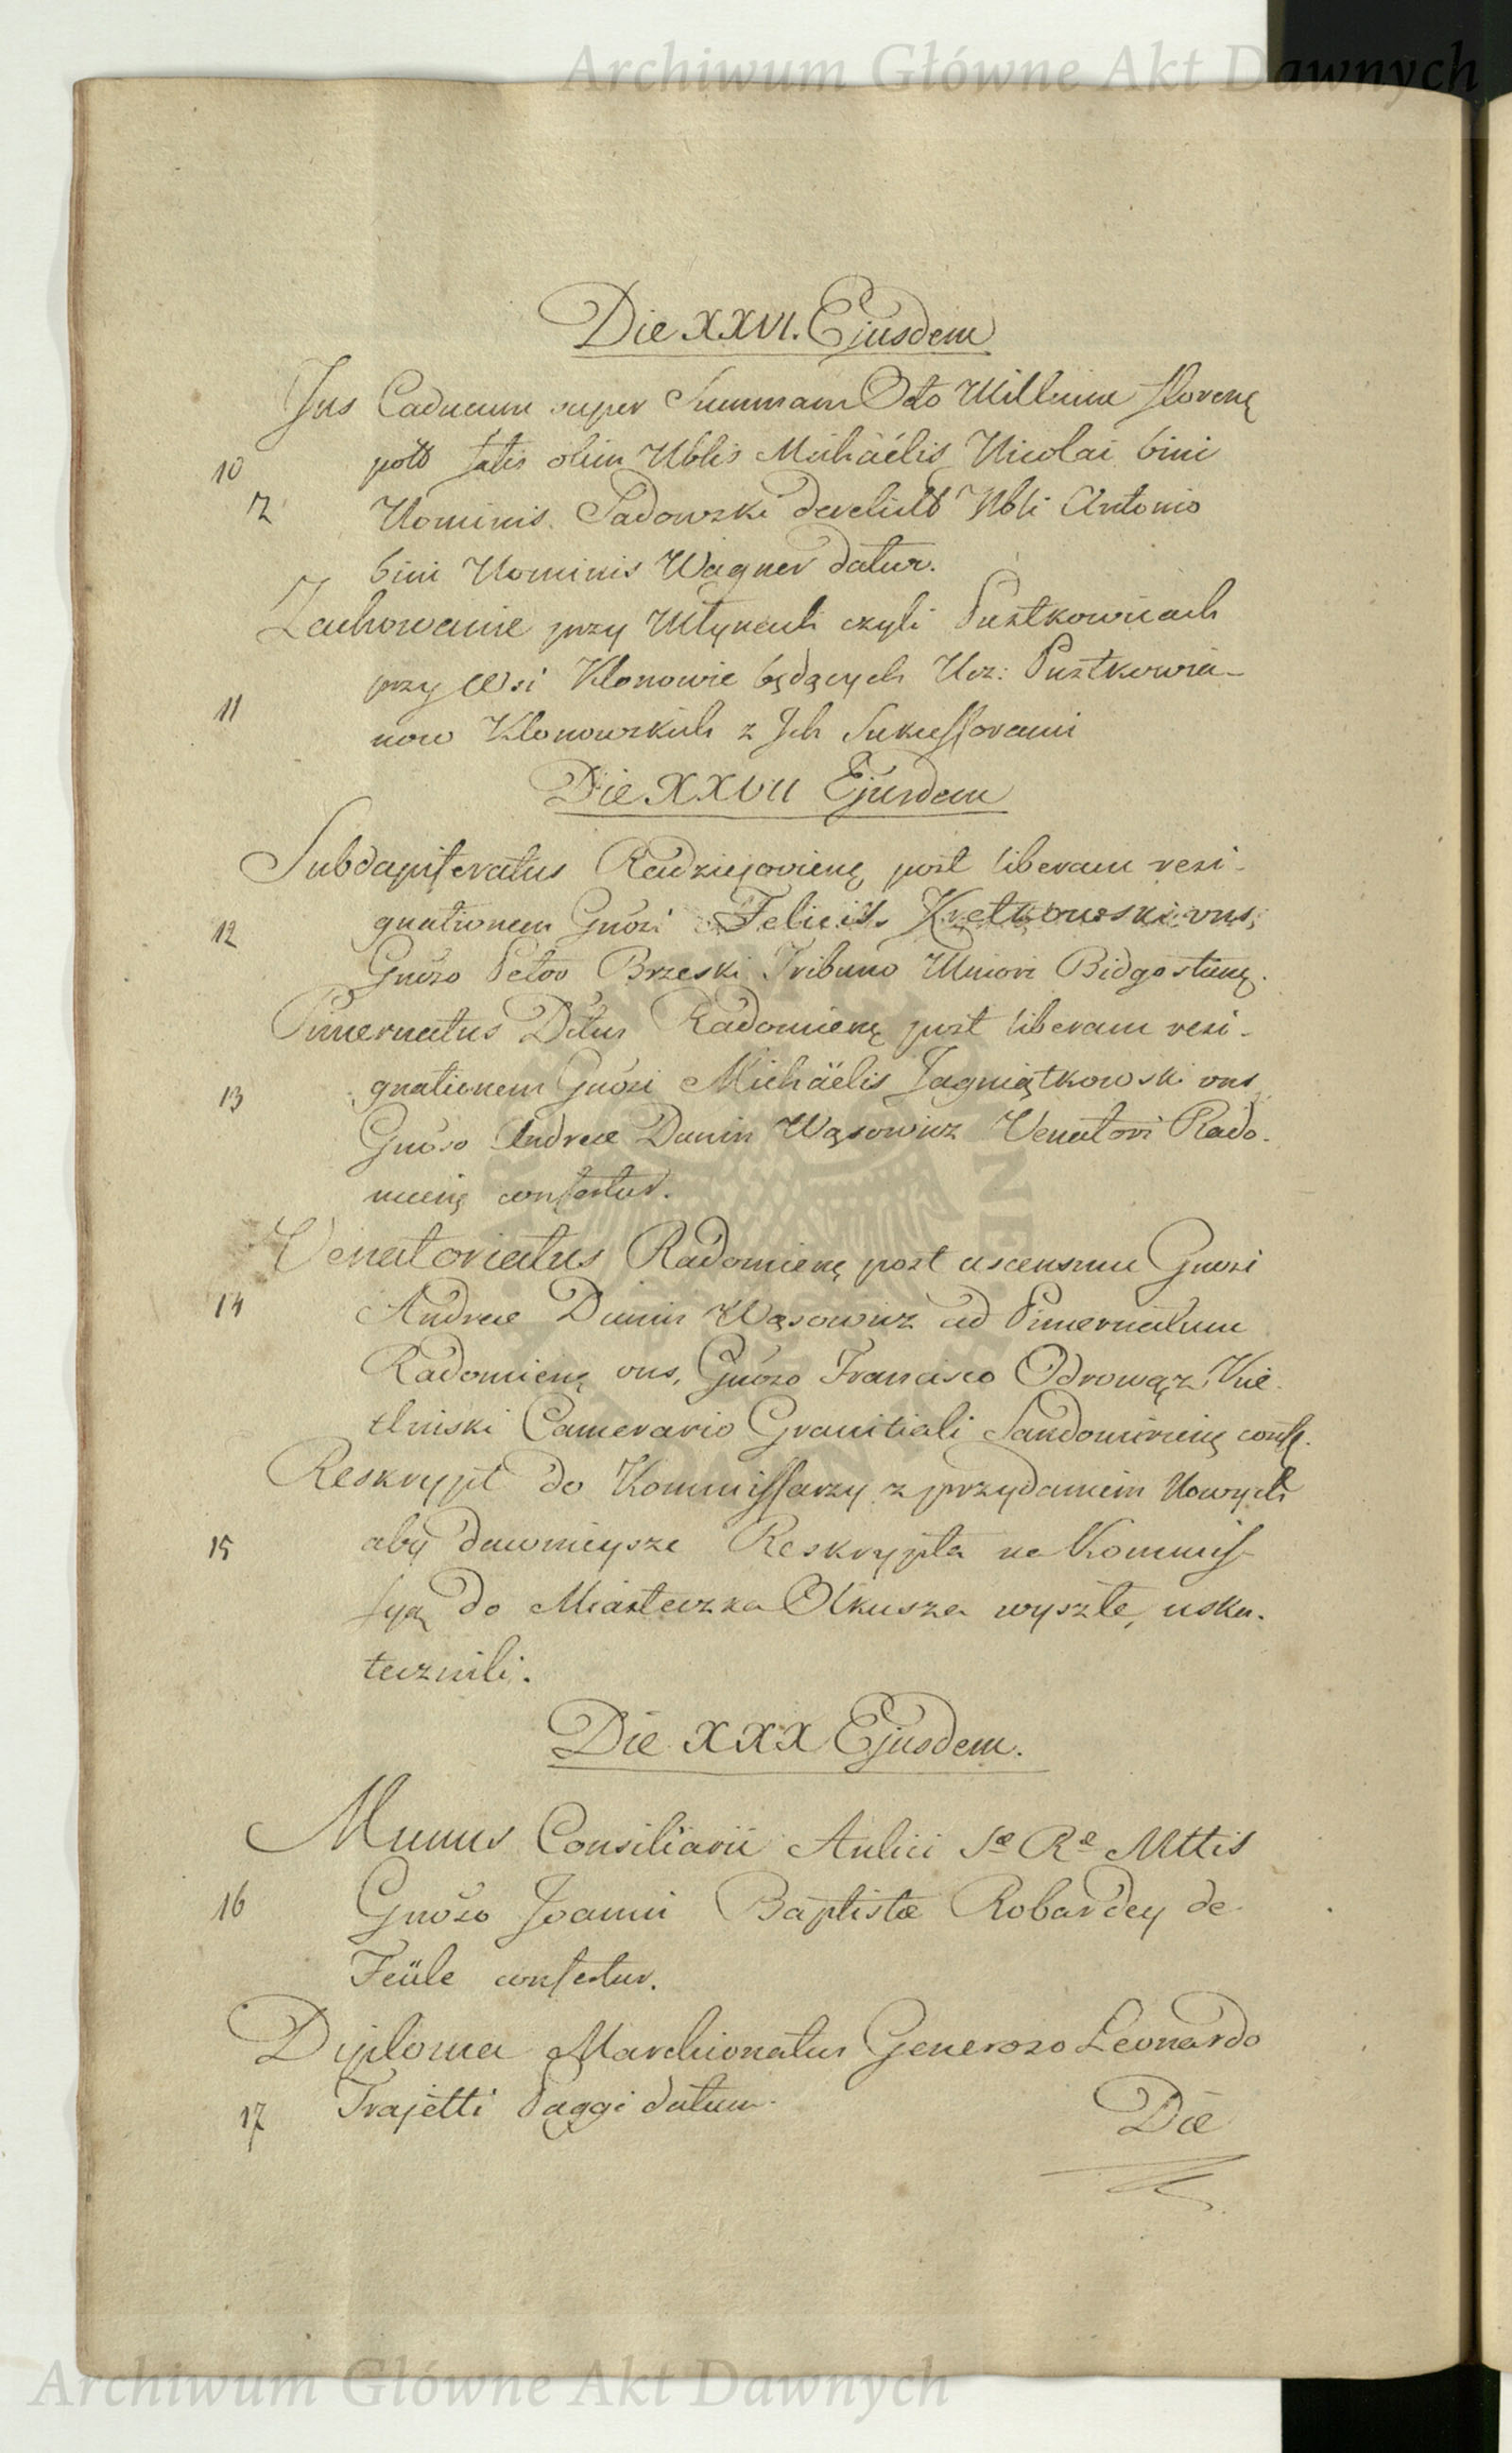 Archiwum Główne Akt Dawnych
Die XXVI. Ejusdem
Jus Caducum super Summam Octo Millium florenę
10 post fatis olim Nblis Michäélis Nicolai bini
7 Nominis Sadowski Nbli Antonio
bini Nominis Wagner datur.
Zachowanie przy Młynach czyli Pustkowiach
przy Wsi Klonowie będących Ucz: Pustkowia-
11 now Klonowskich z Jch Sukcessorami
Die XXVII Ejusdem
Subdapiferatus Radziejovienę post liberam resi-
12 gnationem Gnosi Felicis Kretkowski vns,
Gnoso Petro Brzeski Tribuno Minori Bidgostienę.
Pincernatus Dctus Radomienę post liberam resi-
13 gnationem Gnosi Michäelis Jagniątkowski vns
Gnoso Andreæ Dunin Wąsowicz Venatori Rado-
mienę confertur.
Venatoriatus Radomienę post ascensum Gnosi
14 Andreæ Dunin Wąsowicz ad Pincernatum
Radomienę vns, Gnoso Francisco Odrowąz Kie-
tliński Camerario Granitiali Sandomirienę confę.
Reskrypt do Kommissarzy z przydaniem Nowych
15 aby dawnieysze Reskrypta na Kommis-
syą do Miasteczka Olkusza wyszłe, usku-
tecznili.
Die XXX Ejusdem.
Munus Consiliarii Aulici Sæ Ræ Mttis
16 Gnoso Joanni Baptistæ Robardey de
Feüle confertur.
Dyploma Marchionatus Generoso Leonardo
17 Trajetti Paggi datum.
Die
Archiwum Główne Akt Dawnych